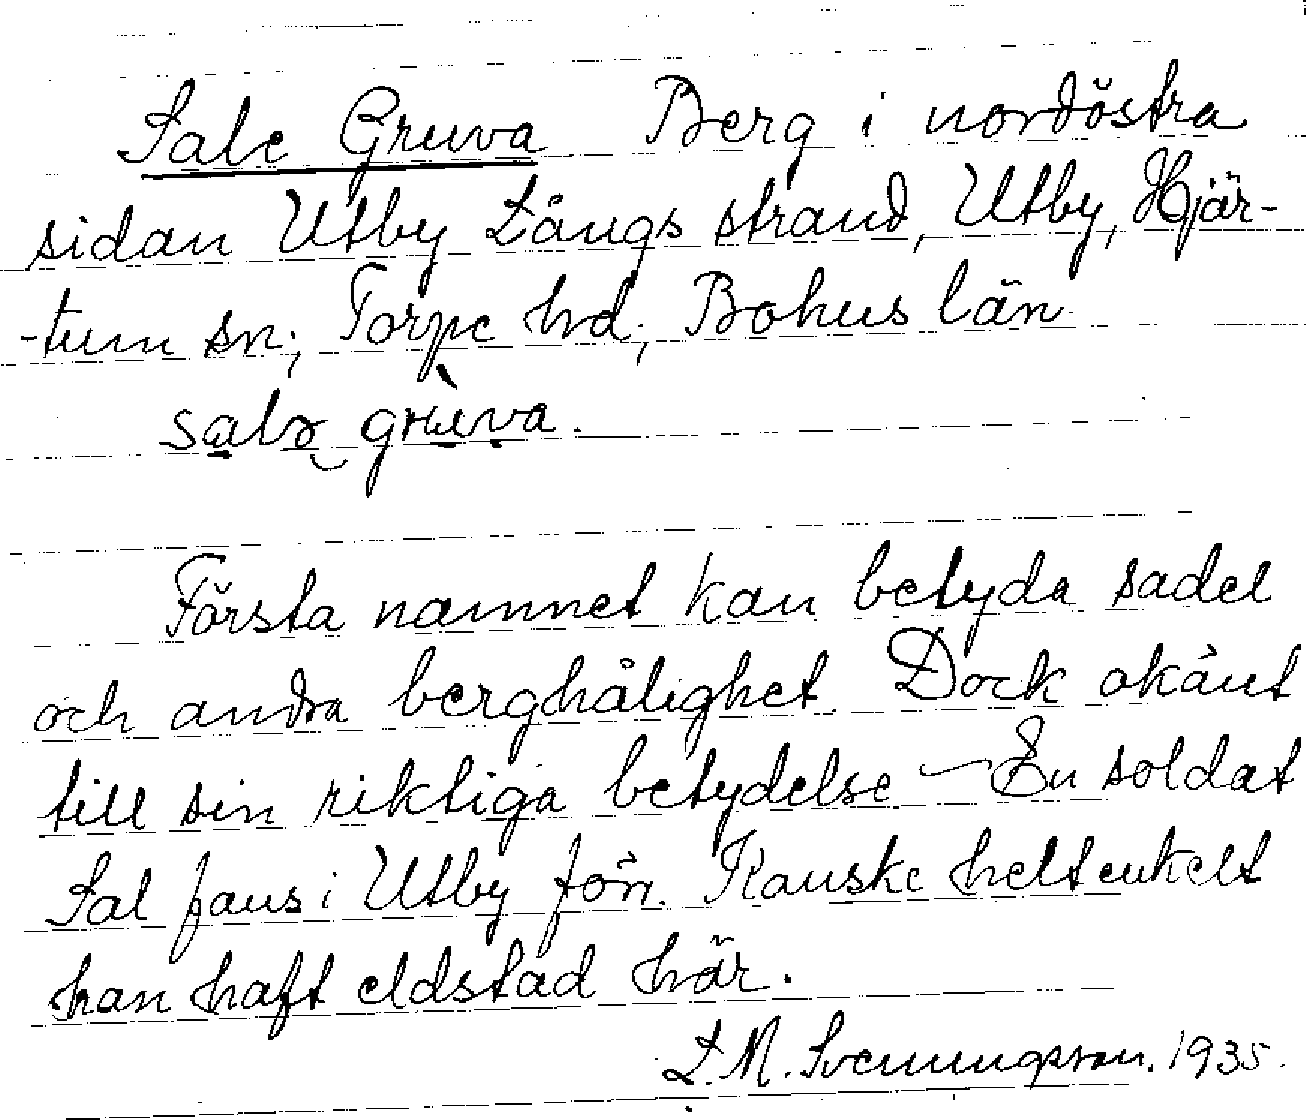 Sale Gruva Berg i nordöstra
sidan Utby Långs strand, Utby, Hjär-
-tum sn; Torpe hd; Bohus län
salɘ grùva.
Första namnet kan betyda sadel
och andra berghålighet. Dock okänt
till sin riktiga betydelse – En soldat
Sal fans i Utby förr. Kanske helt enkelt
han haft eldstad här.
L. M. Svenningsson. 1935.